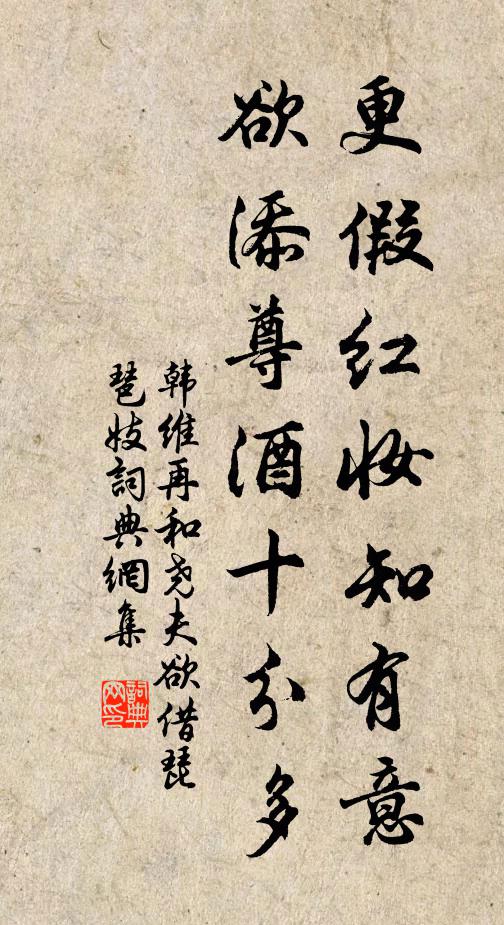 更假红妆知有意
欲添尊酒十分多
韩维再和尧夫欲借琵
琶妓詞典網集
詞典网印